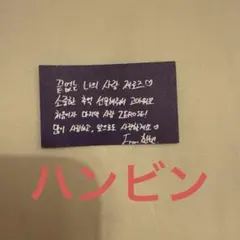 끝없는 나의 사랑 제로즈♡
소중한 추억 선물해줘서 고마워요
처음이자 마지막 사랑 ZEROSE!
많이 사랑하고, 앞으로도 사랑할게요♡
From 한빈
ハンビン